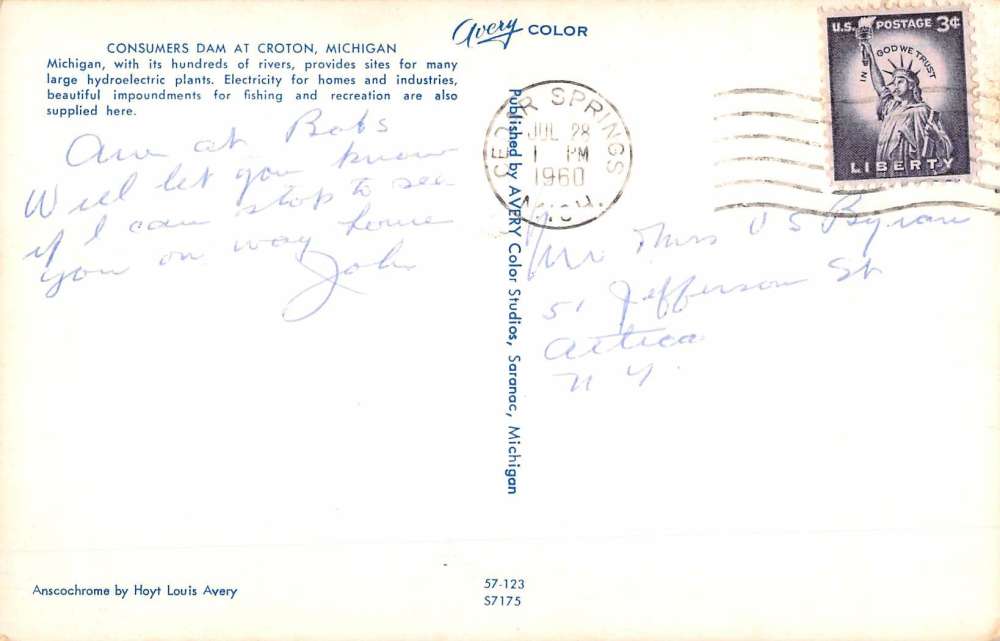 Avery COLOR
CONSUMERS DAM AT CROTON, MICHIGAN
Michigan, with its hundreds of rivers, provides sites for many
large hydroelectric plants. Electricity for homes and industries,
beautiful impoundments for fishing and recreation are also
supplied here.
Am at Bobs
Will let you know
if I can stop to see
you on way home
John
Published by AVERY Color Studios, Saranac, Michigan
CEDAR SPRINGS
JUL 28
1 PM
1960
MICH.
U.S. POSTAGE 3¢
IN GOD WE TRUST
LIBERTY
Mr Mrs O S Byram
51 Jefferson St
Attica
N Y.
Anscochrome by Hoyt Louis Avery
57-123
S7175